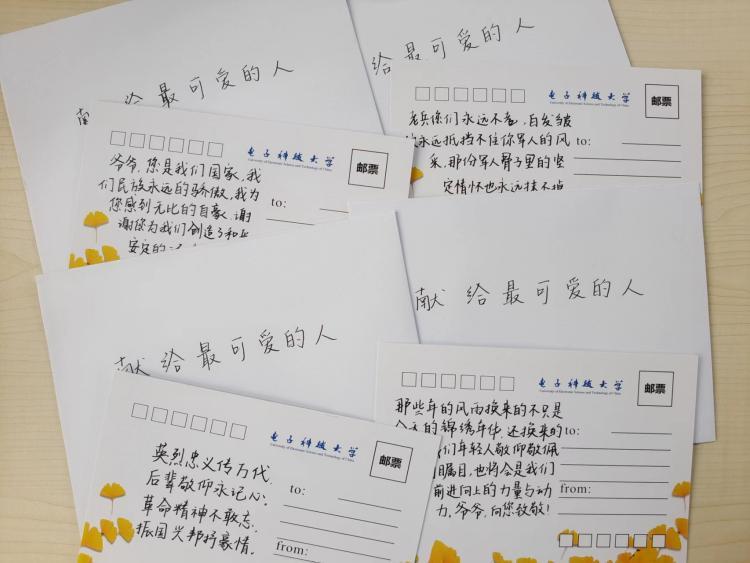 给最可爱的人
给最可爱的人
电子科技大学
University of Electronic Science and Technology of China
邮票
老兵你们永远不老,白发皱
永远抵挡不住你军人的风
采,那份军人骨子里的坚
定情怀也永远抹不掉
to:
电子科技大学
University of Electronic Science and Technology of China
邮票
爷爷,您是我们国家,我
们民族永远的骄傲,我为
您感到无比的自豪。谢
谢您为我们创造了和
安定的
to:
献给最可爱的人
献给最可爱的人
电子科技大学
University of Electronic Science and Technology of China
邮票
那些年的风雨换来的不只是
的锦绣年华,还换来的
们年轻人敬仰敬佩
瞩目,也将会是我们
前进向上的力量与动
力。爷爷,向您致敬!
to:
from:
电子科技大学
University of Electronic Science and Technology of China
邮票
英烈忠义传万代,
后辈敬仰永记心。
革命精神不敢忘,
振国兴邦抒豪情。
to:
from: